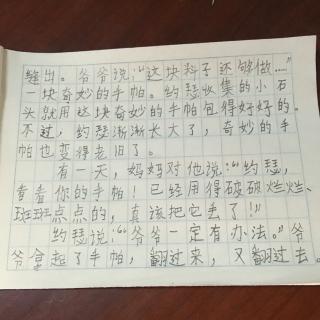 缝出。爷爷说:“这块料子还够做……”
一块奇妙的手帕。约瑟收集的小石
头就用这块奇妙的手帕包得好好的。
不过,约瑟渐渐长大了,奇妙的手
帕也变得老旧了。
有一天,妈妈对他说:“约瑟,
看看你的手帕!已经用得破破烂烂、
斑斑点点的,真该把它丢了!”
约瑟说:“爷爷一定有办法。”爷
爷拿起了手帕,翻过来,又翻过去。